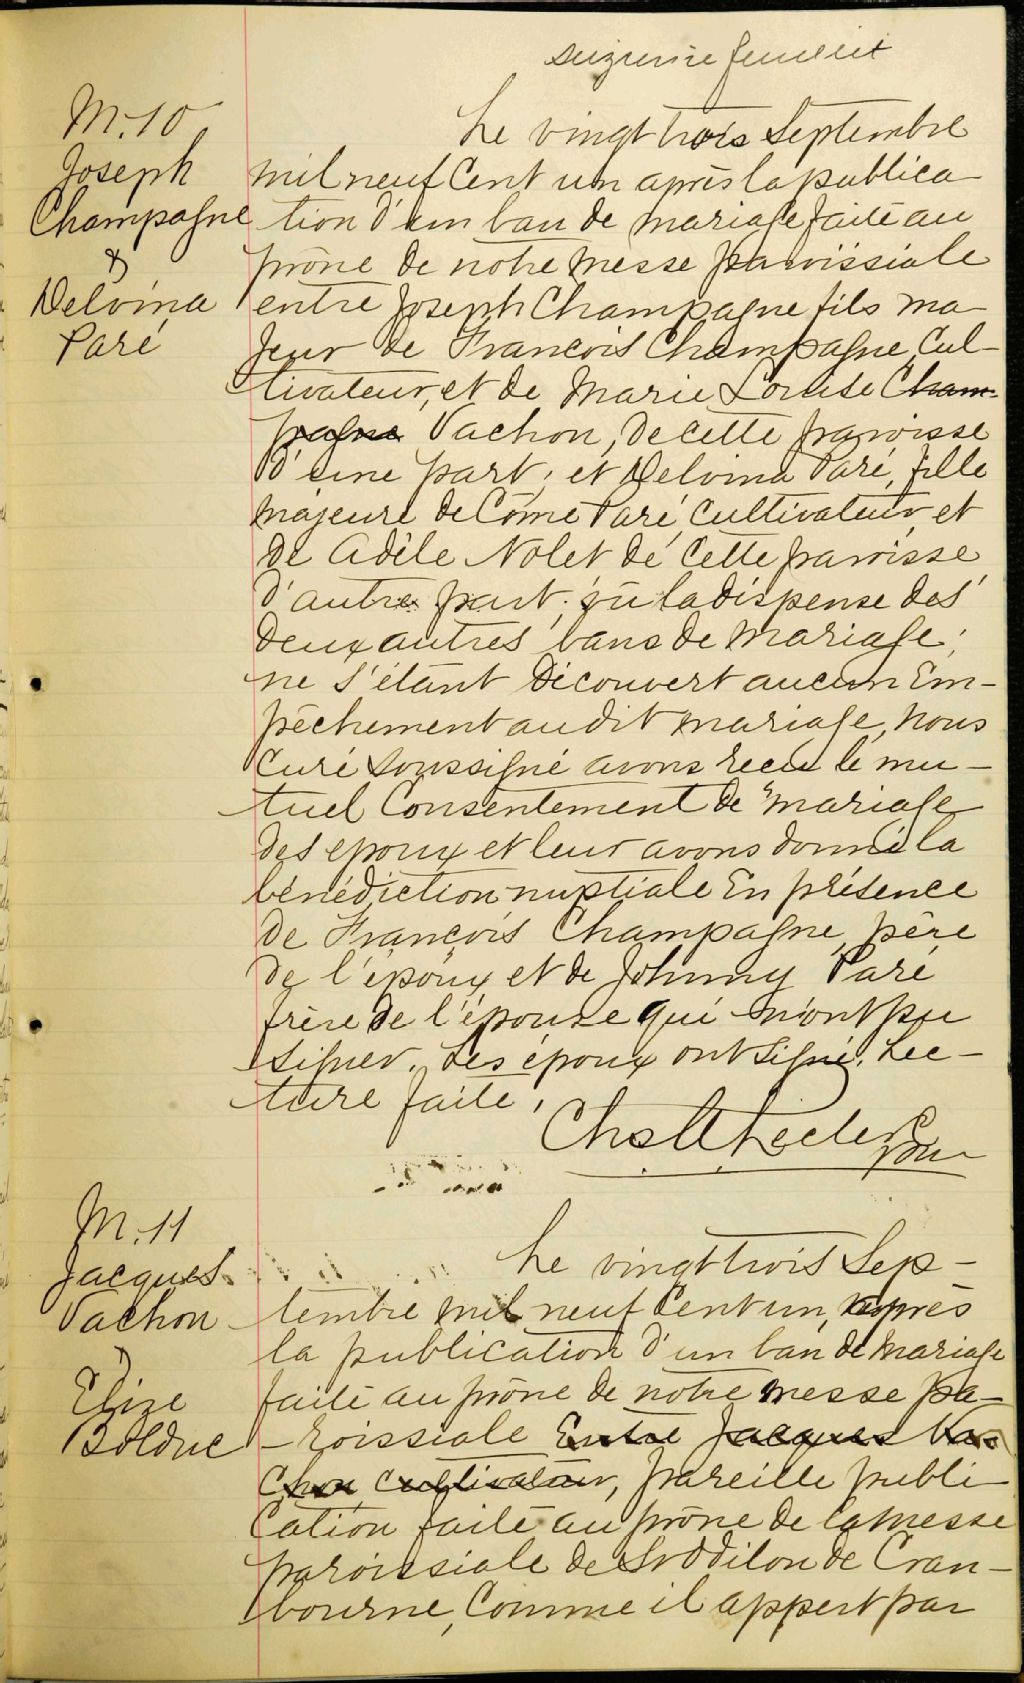 seizieme feuillet
M. 10
Joseph
Champagne
&
Delvina
Paré
Le vingt trois Septembre
mil neuf Cent un après la publica-
tion d'un ban de mariage faite au
prône de notre messe paroissiale
entre Joseph Champagne fils ma-
jeur de Francois Champagne, Cul-
tivateur, et de Marie Louise Cham-
pagne Vachon, de cette paroisse
d'une part; et Delvina Paré, fille
majeure de Côme Paré, cultivateur et
de Adèle Nolet de cette paroisse
d'autre part; vu la dispense des
deux autres bans de mariage;
ne s'étant découvert aucun Em-
pêchement au dit mariage, nous
curé soussigné avons recu le mu-
tuel Consentement de mariage
des epoux et leur avons donné la
bénédiction nuptiale En présence
de François Champagne, père
de l'époux et de Johnny Paré
frère de l'épouse qui n'ont pu
signer. Les époux ont signé. Lec-
ture faite.
Chs A Leclerc
M. 11
Jacques
Vachon
&
Elize
Bolduc
Le vingt trois Sep-
tembre mil neuf Cent un, après
la publication d'un ban de mariage
faite au prône de notre messe pa-
-roissiale Entre Jacques Va-
chon cultivateur, pareille publi
cation faite au prône de la messe
paroissiale de St Odilon de Cran-
bourne, Comme il appert par